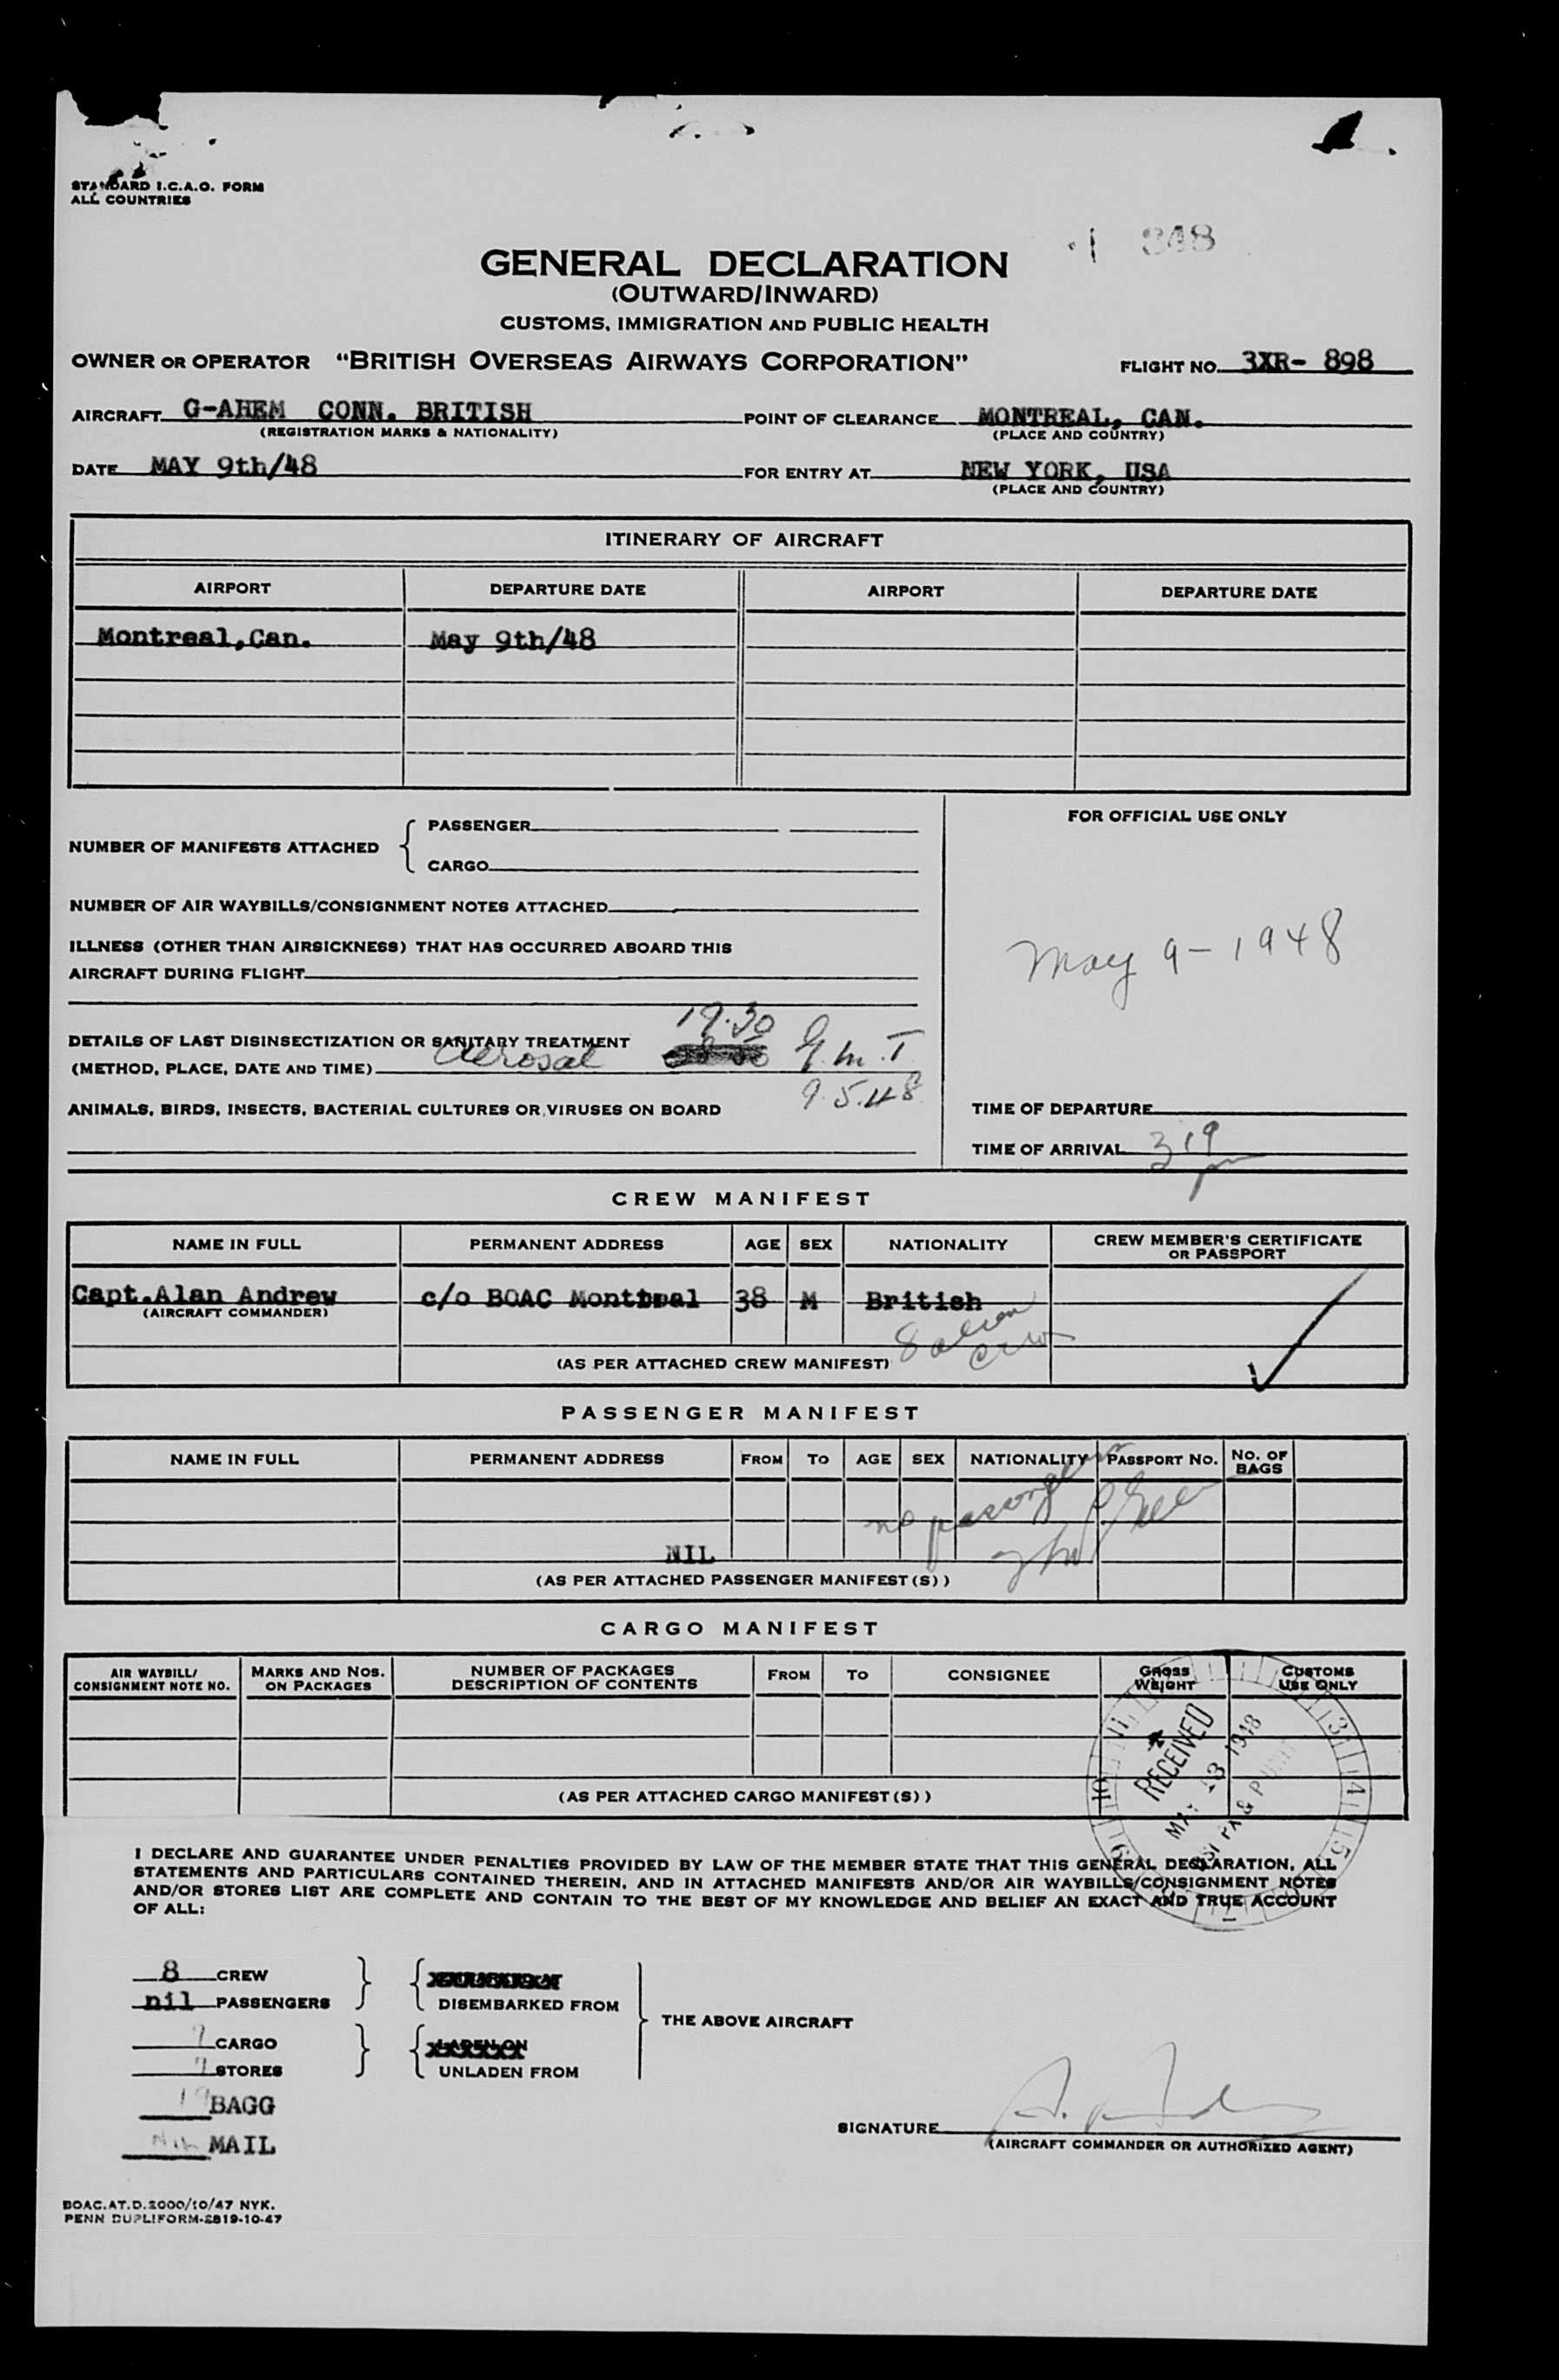 STANDARD I.C.A.O. FORM
ALL COUNTRIES
348
GENERAL DECLARATION
(OUTWARD/INWARD)
CUSTOMS, IMMIGRATION AND PUBLIC HEALTH
OWNER OR OPERATOR "BRITISH OVERSEAS AIRWAYS CORPORATION" FLIGHT NO. 3XR- 898
AIRCRAFT G-AHEM CONN. BRITISH POINT OF CLEARANCE MONTREAL, CAN.
(REGISTRATION MARKS & NATIONALITY) (PLACE AND COUNTRY)
DATE MAY 9th/48 FOR ENTRY AT NEW YORK, USA
(PLACE AND COUNTRY)
ITINERARY OF AIRCRAFT
AIRPORT DEPARTURE DATE AIRPORT DEPARTURE DATE
Montreal,Can. May 9th/48
FOR OFFICIAL USE ONLY
NUMBER OF MANIFESTS ATTACHED { PASSENGER
CARGO
NUMBER OF AIR WAYBILLS/CONSIGNMENT NOTES ATTACHED
ILLNESS (OTHER THAN AIRSICKNESS) THAT HAS OCCURRED ABOARD THIS
AIRCRAFT DURING FLIGHT
May 9-1948
19.30
DETAILS OF LAST DISINSECTIZATION OR SANITARY TREATMENT
(METHOD, PLACE, DATE AND TIME) Aerosal G.m.T.
9.5.48
ANIMALS, BIRDS, INSECTS, BACTERIAL CULTURES OR VIRUSES ON BOARD
TIME OF DEPARTURE
TIME OF ARRIVAL 319 pm
CREW MANIFEST
NAME IN FULL PERMANENT ADDRESS AGE SEX NATIONALITY CREW MEMBER'S CERTIFICATE OR PASSPORT
Capt.Alan Andrew c/o BOAC Montreal 38 M British
(AIRCRAFT COMMANDER)
8 alien crew
(AS PER ATTACHED CREW MANIFEST)
PASSENGER MANIFEST
NAME IN FULL PERMANENT ADDRESS FROM TO AGE SEX NATIONALITY PASSPORT NO. NO. OF BAGS
no passengers
NIL
(AS PER ATTACHED PASSENGER MANIFEST(S))
CARGO MANIFEST
AIR WAYBILL/ CONSIGNMENT NOTE NO. MARKS AND NOS. ON PACKAGES NUMBER OF PACKAGES DESCRIPTION OF CONTENTS FROM TO CONSIGNEE GROSS WEIGHT CUSTOMS USE ONLY
RECEIVED
1948
(AS PER ATTACHED CARGO MANIFEST(S))
I DECLARE AND GUARANTEE UNDER PENALTIES PROVIDED BY LAW OF THE MEMBER STATE THAT THIS GENERAL DECLARATION, ALL
STATEMENTS AND PARTICULARS CONTAINED THEREIN, AND IN ATTACHED MANIFESTS AND/OR AIR WAYBILLS/CONSIGNMENT NOTES
AND/OR STORES LIST ARE COMPLETE AND CONTAIN TO THE BEST OF MY KNOWLEDGE AND BELIEF AN EXACT AND TRUE ACCOUNT
OF ALL:
8 CREW
nil PASSENGERS DISEMBARKED FROM
THE ABOVE AIRCRAFT
CARGO LADEN ON
STORES UNLADEN FROM
19 BAGG
NIL MAIL
SIGNATURE
(AIRCRAFT COMMANDER OR AUTHORIZED AGENT)
BOAC.AT.D.2000/10/47 NYK.
PENN DUPLIFORM-2819-10-47